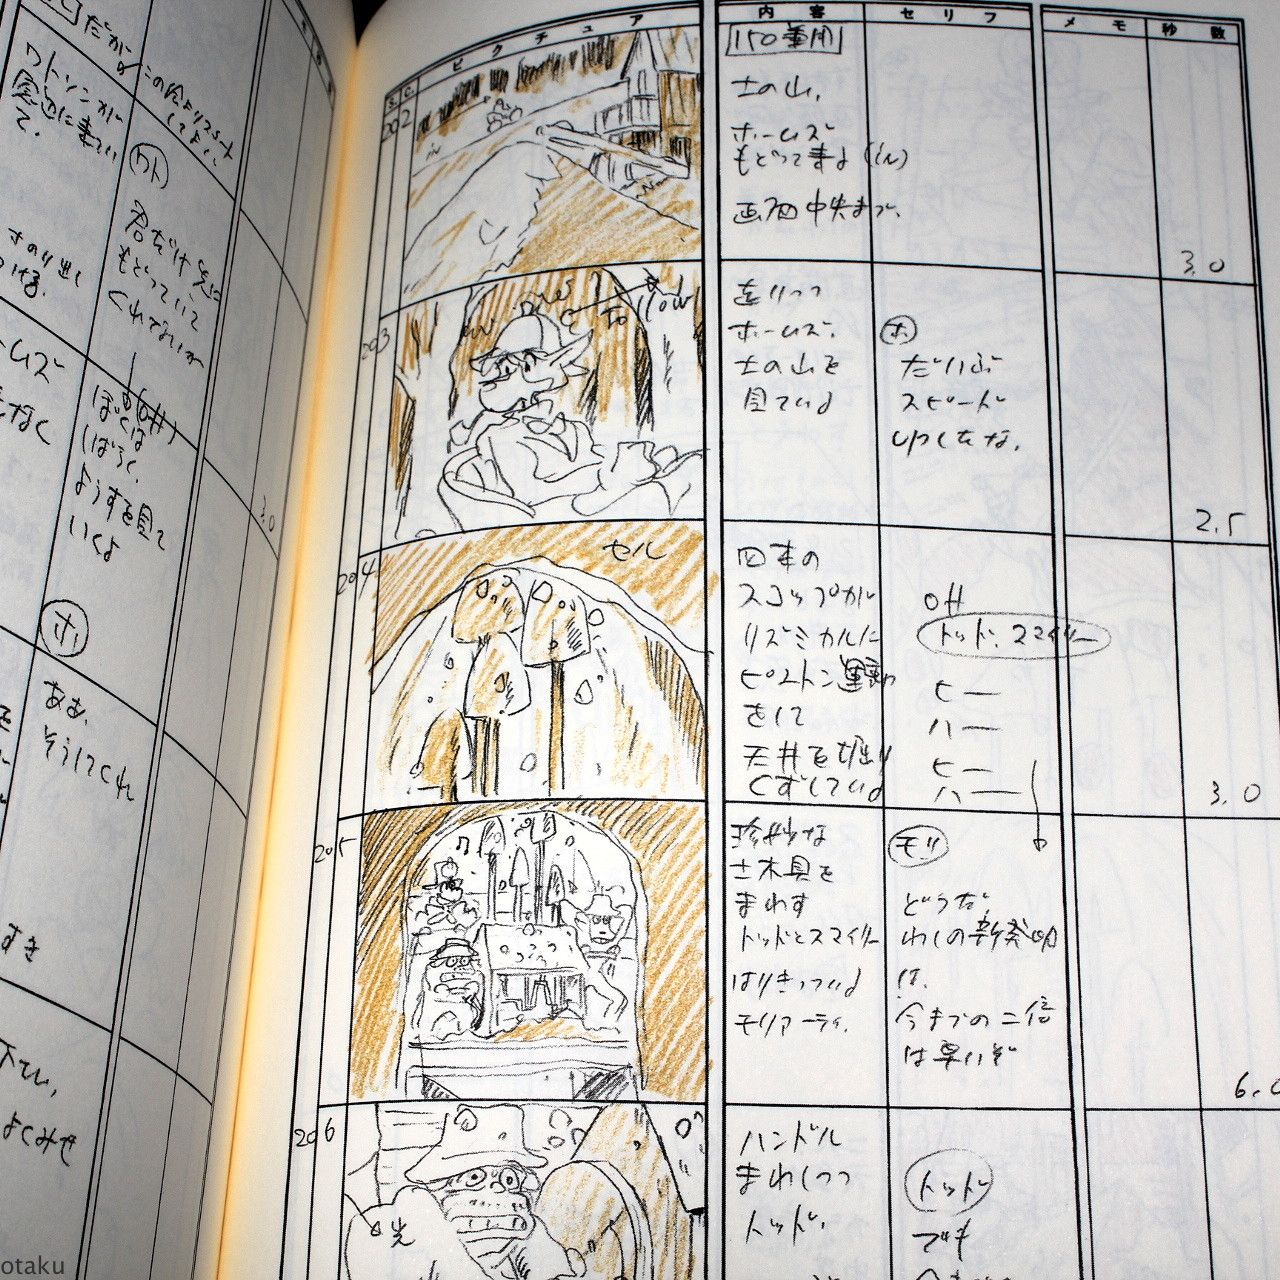 だが
この絵よりスタート
してよい
ワトソンが
窓辺に来てい
て、
ワト
君だけ先に
もどっていて
くれないか
ぼくは
しばらく
ようすを見て
いくよ
3.0
ホ
ああ、
そうしてくれ
すき
よくみせ
S. C. ピクチュア 内容 セリフ メモ 秒数
202
150兼用
土の山、
ホームズ
もどって来る(in)
画面中央まで、
in
3.0
203
to
slow
ホームズ、
土の山を
見ている
ホ
だいぶ
スピード
upしたな、
2.5
204
セル
四本の
スコップが
リズミカルに
ピストン運動
をして
天井を堀り
くずしている
off
トッド、スマイリー
ヒー
ハー
ヒー
ハー
3.0
205
珍妙な
土木具を
まわす
トッドとスマイリー
はりきっている
モリアーティ、
モリ
どうだ
わしの新発明
は、
今までの二倍
は早いぞ
6.0
206
光
ハンドル
まわしつつ
トッド、
トッド
でも
otaku